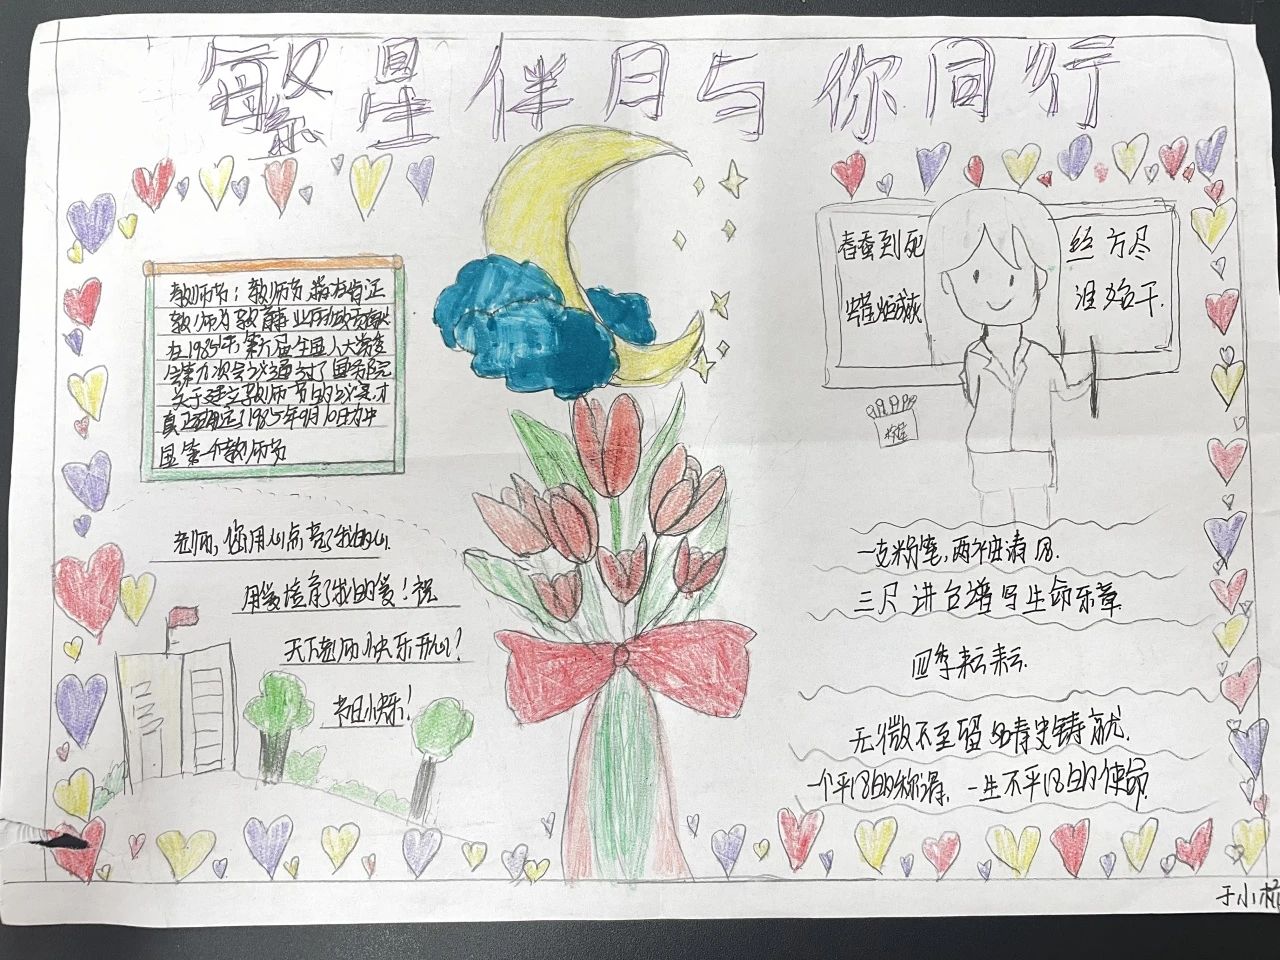 繁星伴月与你同行
教师节：教师节，旨在肯定
教师为教育事业所做贡献
在1985年，第六届全国人大常委
会第九次会议通过了国务院
关于建立教师节的议案，才
真正确定了1985年9月10日为中
国第一个教师节
老师，你用心点亮了我的心
用爱培育了我的爱！祝
天下老师快乐开心！
节日快乐！
春蚕到死 丝方尽
蜡炬成灰 泪始干.
粉笔
一支粉笔，两袖清风.
三尺讲台谱写生命乐章
四季耕耘
无微不至留 晴史铸就.
一个平凡的称谓，一生不平凡的使命.
于小